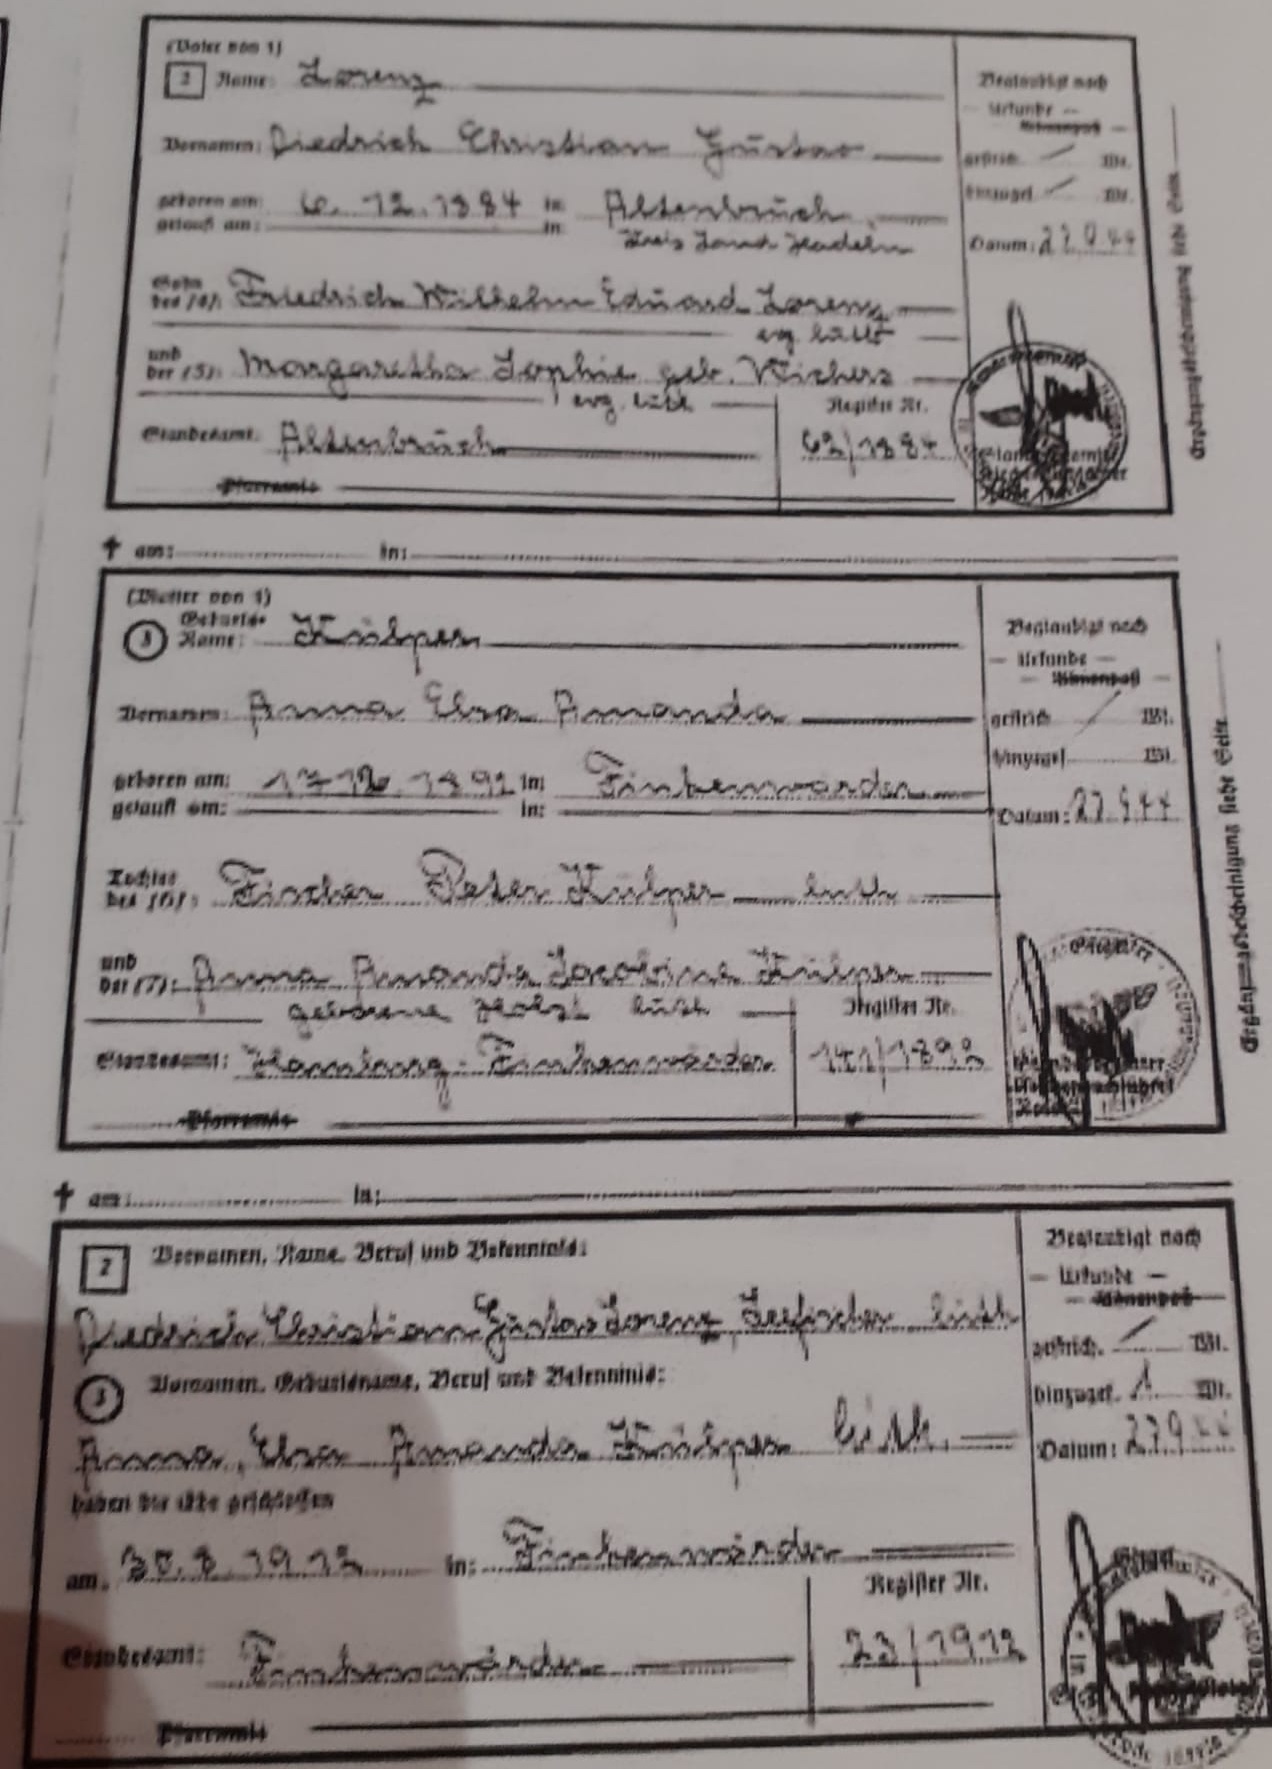 (Vater von 1)
2 Name: Lorenz
Vornamen: Diedrich Christian Gustav
geboren am: 6. 12. 1884 in Altenbruch
getauft am: in:
Kreis Land Hadeln
Sohn des (4): Friedrich Wilhelm Eduard Lorenz
evg. luth
und der (5): Margaretha Sophie geb. Wichers
evg. luth
Standesamt: Altenbruch
Pfarramt:
Register Nr.
62/1884
Beglaubigt nach
— Urkunde —
— Ahnenpaß —
gestrich. Wt.
hinzugef. Wt.
Datum: 27.9.44
Ergänzungsbescheinigung siehe Seite
† am: in:
(Mutter von 1)
3 Geburts-Name: Külper
Vornamen: Anna Elsa Amanda
geboren am: 12. 1892 in: Finkenwärder
getauft am: in:
Tochter des (6): Fischer Peter Külper luth
und der (7): Anna Amanda Jacobine Külper
geborene Holst luth
Standesamt: Hamburg-Finkenwärder
Pfarramt:
Register Nr.
141/1892
Beglaubigt nach
— Urkunde —
— Ahnenpaß —
gestrich. Wt.
hinzugef. Wt.
Datum: 27.9.44
Ergänzungsbescheinigung siehe Seite
† am: in:
2 Vornamen, Name, Beruf und Bekenntnis:
Diedrich Christian Gustav Lorenz, Seefischer luth
3 Vornamen, Geburtsname, Beruf und Bekenntnis:
Anna, Elsa Amanda Külper luth.
haben die Ehe geschlossen
am: 8. 1912 in: Finkenwärder
Standesamt: Finkenwärder
Pfarramt:
Register Nr.
23/1912
Beglaubigt nach
— Urkunde —
— Ahnenpaß —
gestrich. Wt.
hinzugef. Wt.
Datum: 27.9.44